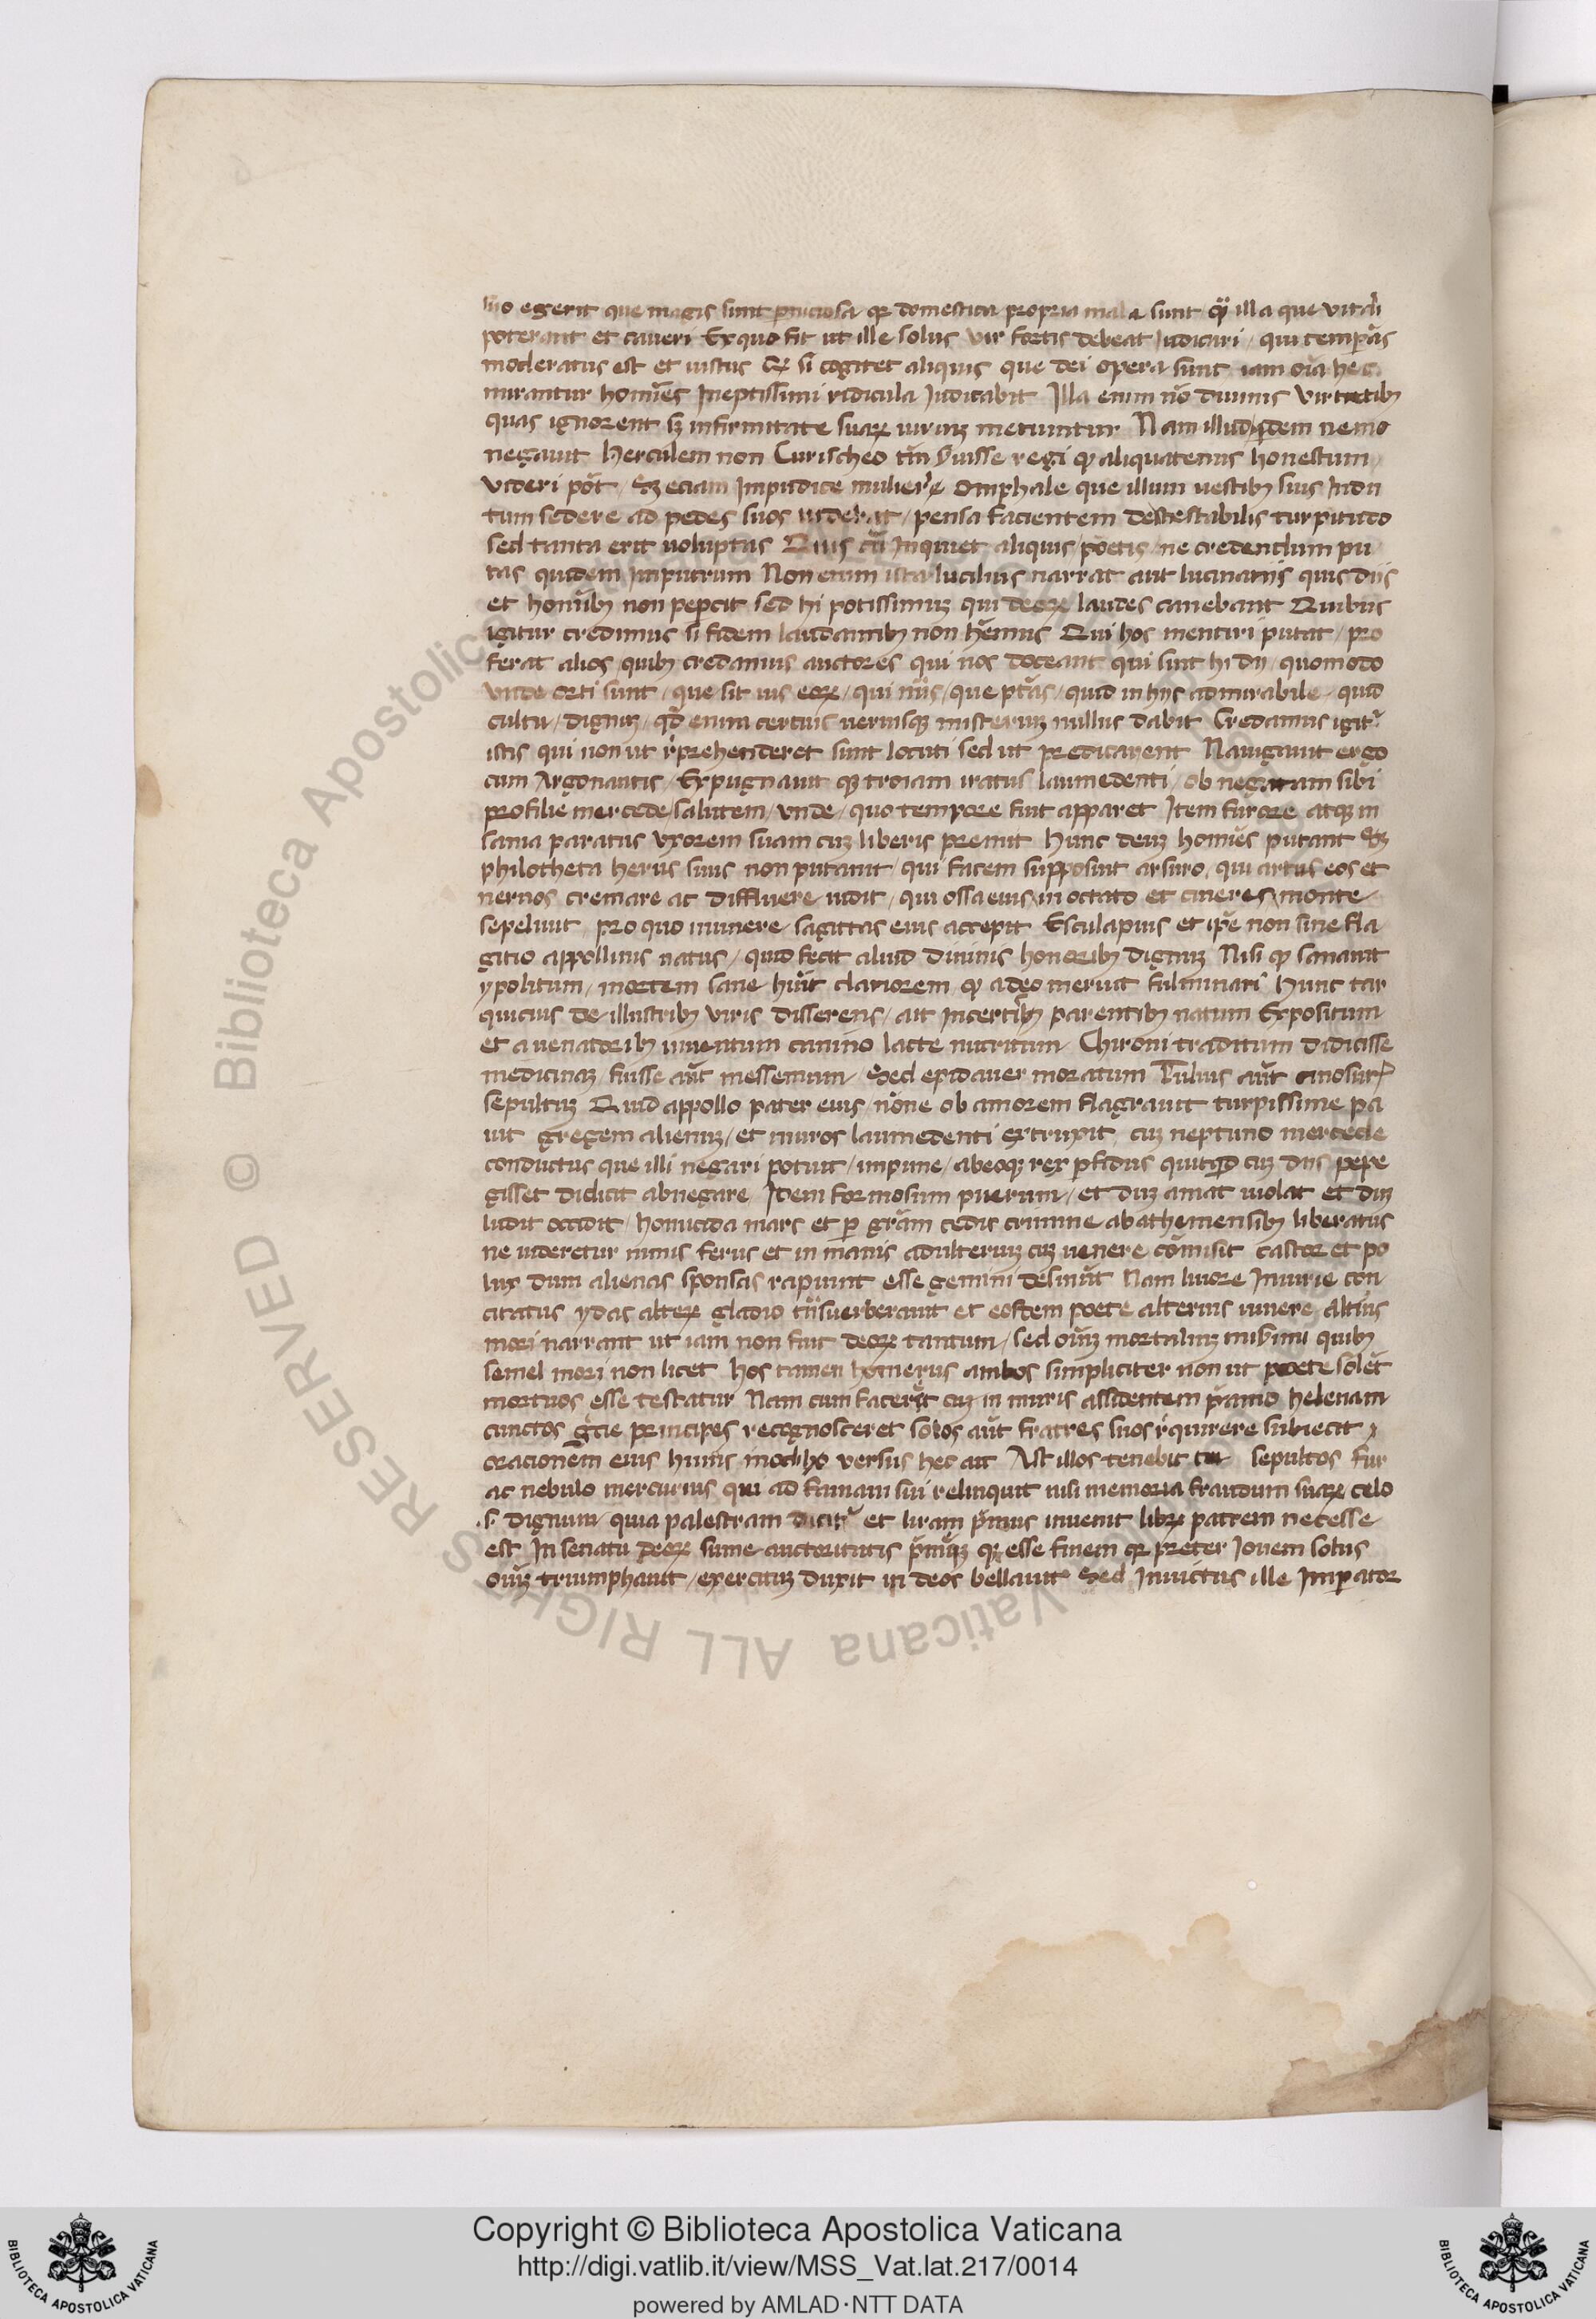 suo egerit que magis sunt pniciosa qr domestica propria mala sunt qͣ illa que vitari
poterant et caveri Ex quo fit ut ille solus vir fortis debeat iudicari / qui temperãs
moderatus est et iustus Qr si cogitet aliquis que dei opera sunt iam oĩa hec
mirantur homĩes Ineptissimi ridicula Iudicabit Illa enim nõ divinis virtutibꝫ
quas ignorent sꝫ infirmitate suaꝝ viriuꝫ metiuntur Nam illud quidem nemo
negavit Herculem non Eurischeo tm̃ s̃uisse regi qꝫ aliquatenus honestum
videri pot̃ / Sꝫ eciam Impudice mulieri Omphale que illum vestibꝫ suis Indu
tum sedere ad pedes suos iudebat / pensa facientem destestabilis turpitudo
sed tanta erit voluptas Quis cũ inquiet aliquis poetis ne credendum pu
tas quidem Inputrum Non enim ista lucilius narrat aut lucinariis quis diis
et homĩbꝫ non pepcit sed hi potissimuꝫ qui deoꝝ laudes canebant Quibus
igitur credimus si fidem laudantibꝫ non hẽmus Qui hos mentiri putat / pro
ferat alios quibꝫ credamus auctores qui nos doceant qui sint hi dii / quomodo
unde orti sunt / que sit vis eoꝝ / qui nũs / que ptãs / quid in hiis admirabile / quid
cultu / dignuꝫ / qd̃ enim certius veriusqꝫ misteriuꝫ nullus dabit Credamus igitᷣ
istis qui non ut rͥprehenderet sunt locuti sed ut predicarent Navigavit ergo
cum Argonautis / Expugnavit qꝫ troiam iratus laumedenti / ob negatam sibi
pro filie mercede salutem / unde / quo tempore fuit apparet Item furore atqꝫ in
sania paratus Uxorem suam cuꝫ liberis premit Hunc deuꝫ homĩes putant Sꝫ
philotheta herus suus non putavit / qui facem supposuit arsuro, qui artus eos et
nervos cremare ac diffluere vidit / qui ossa eius in octato et cineres monte
sepelivit pro quo munere sagittas eius accepit Esculapius et ip̃e non sine fla
gitio appollinis natus / quid fecit aliud divinis honoribꝫ dignuꝫ Nisi qꝫ sanavit
ypolitum / mortem sane hũit clariorem qꝫ a deo meruit fulminari Hunc tar
quicius de illustribꝫ viris disserens / ait Incertibꝫ parentibꝫ natum Expositum
et a venatoribꝫ inventum canino lacte nutritum Chironi traditum didicisse
medicinaꝫ fuisse aũt messenium / Sed epidauer moratum Tulius aũt cinosurꝭ
sepultuꝫ Quid appollo pater eius / nõne ob amorem flagravit turpissime pa
vit gregem alienuꝫ / et muros laumedenti extruxit / cuꝫ neptuno mercede
conductus que illi negari potuit / impune / ab eoqꝫ rex pfidus quitqd cuꝫ diis pepe
gisset didicit abnegare Idem formosum puerum / et duꝫ amat violat et duꝫ
ludit occidit / homicida mars et p gr̃am cedis crimine ab atheniensibꝫ liberatus
ne videretur nimis ferus et in manis adulteriuꝫ cuꝫ venere cõmisit castor et po
lux dum alienas sponsas rapiunt esse gemini desinũt Nam livore Iniurie con
citatus ydas alteꝝ gladio tͣnsverberavit et eosdem poete alternis vivere Altĩus
mori narrant ut iam non sint deoꝝ tantum / sed oĩuꝫ mortaliuꝫ miserimi quibꝫ
semel mori non licet hos tamen homerus ambos simpliciter non ut poete solẽt
mortuos esse testatur Nam cum faceret cuꝫ in muris assidentem p̃amo helenam
cunctos gͥcie principes recognosceret solos aũt fratres suos rͥquirere subiecit
oracionem eius huius modi hͦ versus hec ait Ast illos tenebit sepultos fur
ac nebulo mercurius qui ad famam sui relinquit nisi memoria fraudum suaꝝ celo
.s. dignum quia palestram dicitᷣ et liram p̃mus invenit libeꝝ patrem necesse
est In senatu deoꝝ sume auctoritatis qꝫ esse finem qr preter Jovem solus
oĩuꝫ triumphavit / exercituꝫ duxit in deos bellavit Sed Invictus ille Imperator
Copyright © Biblioteca Apostolica Vaticana
http://digi.vatlib.it/view/MSS_Vat.lat.217/0014
powered by AMLAD·NTT DATA
© Biblioteca Apostolica Vaticana ALL RIGHTS RESERVED
BIBLIOTECA APOSTOLICA VATICANA
BIBLIOTECA APOSTOLICA VATICANA